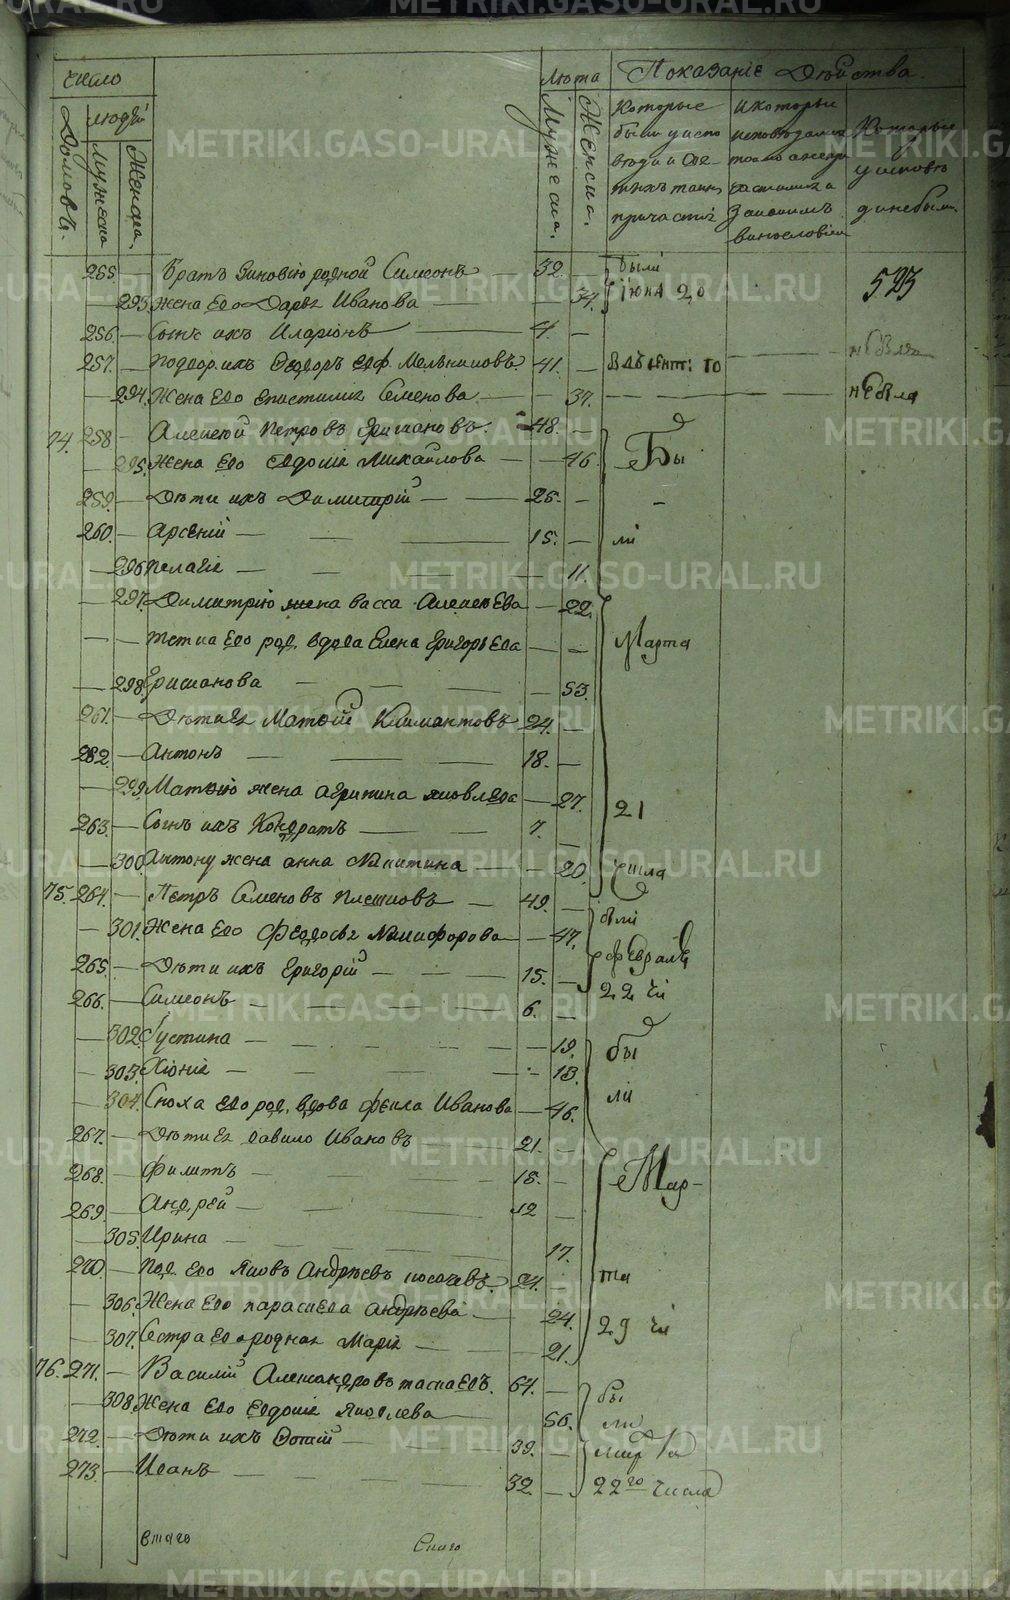 число
Лѣта
Показаніе Дѣйства.
Домовъ.
людей
Мужеска
Женска,
Мужеска.
Женска.
Которые были у исповѣди и святыхъ таинъ причастія
И которые исповѣдались токмо а не причастились и за какимъ винословіемъ
Которые у исповѣди не были
523
255. Братъ Зиновію родной Симеонъ 32. были
293 Жена Его Дарья Иванова 34. Іюня 20
256. Сынъ ихъ Иларіонъ 4.
257. Подвор. ихъ Ѳедоръ Мельниковъ 41. не былъ
294. Жена Его Епистимія Семенова 37. не была
74. 258 Алексей Петровъ Гришановъ. 48.
295. Жена Его Евдокія Михайлова 46 Бы
259 Дѣти ихъ Димитрій 25.
260. Арсеній 15. ли
296 Пелагія 11.
297. Димитрію жена Васса Алексеева 22.
Тетка Его род. вдова Елена Григорьева Марта
298. Гришанова 53.
261. Дѣти Ея Матѳій Климантовъ 24.
262. Антонъ 18.
299 Матѳію жена Агрипина Яковлева 27. 21
263. Сынъ ихъ Кондратъ 7.
300. Антону жена Анна Никитина 20. числа
75. 264. Петръ Семеновъ Плетневъ 49. были
301. Жена Его Феодосья Никифорова 47. февраля
265. Дѣти ихъ Григорій 15. 22 чи
266. Симеонъ 6.
302. Густина 19. бы
303. Хіонія 13.
304. Сноха Его род. вдова Фекла Иванова 46. ли
267. Дѣти Ея Савило Ивановъ 21.
268. Филипъ 18. Мар-
269. Андрей 12
305. Ирина 17.
270. Под. Его Яковъ Андрѣевъ 24. та
306. Жена Его Параскева Андрѣева 24. 29 чи
307. Сестра Его родная Марія 21.
76. 271. Василій Александровъ 64. бы
308. Жена Его Евдокія Яковлева 56. ли
272. Дѣти ихъ Фотій 39. марта
273. Иванъ 32. 22го числа
METRIKI.GASO-URAL.RU